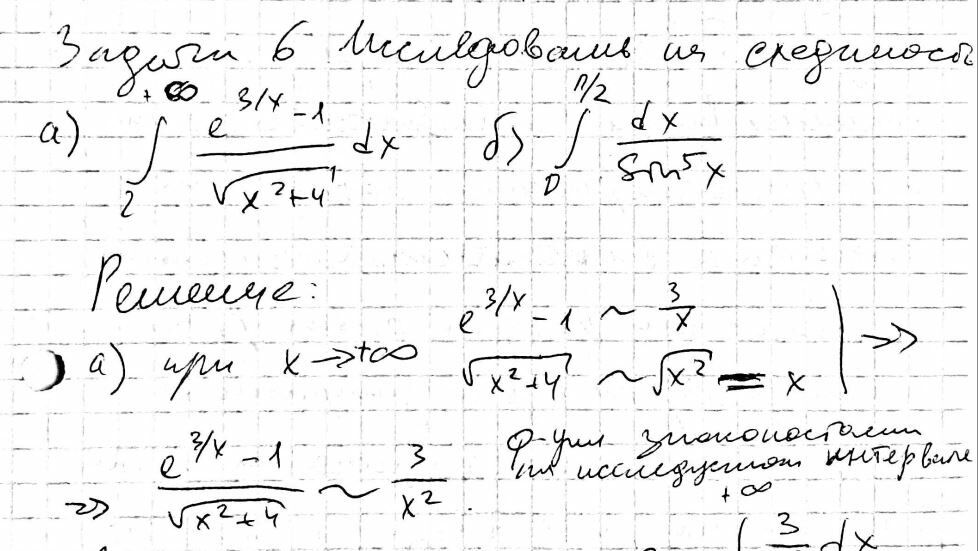 Задача 6 Исследовать на сходимость
а) ∫_2^{+∞} (e^{3/x} - 1)/√(x²+4) dx б) ∫_0^{π/2} dx/sin⁵x
Решение:
а) при x → +∞ e^{3/x} - 1 ~ 3/x
√(x²+4) ~ √x² = x | =>
=> (e^{3/x} - 1)/√(x²+4) ~ 3/x².
ф-ция знакопостоянна
на исследуемом интервале
+∞
∫ 3 dx